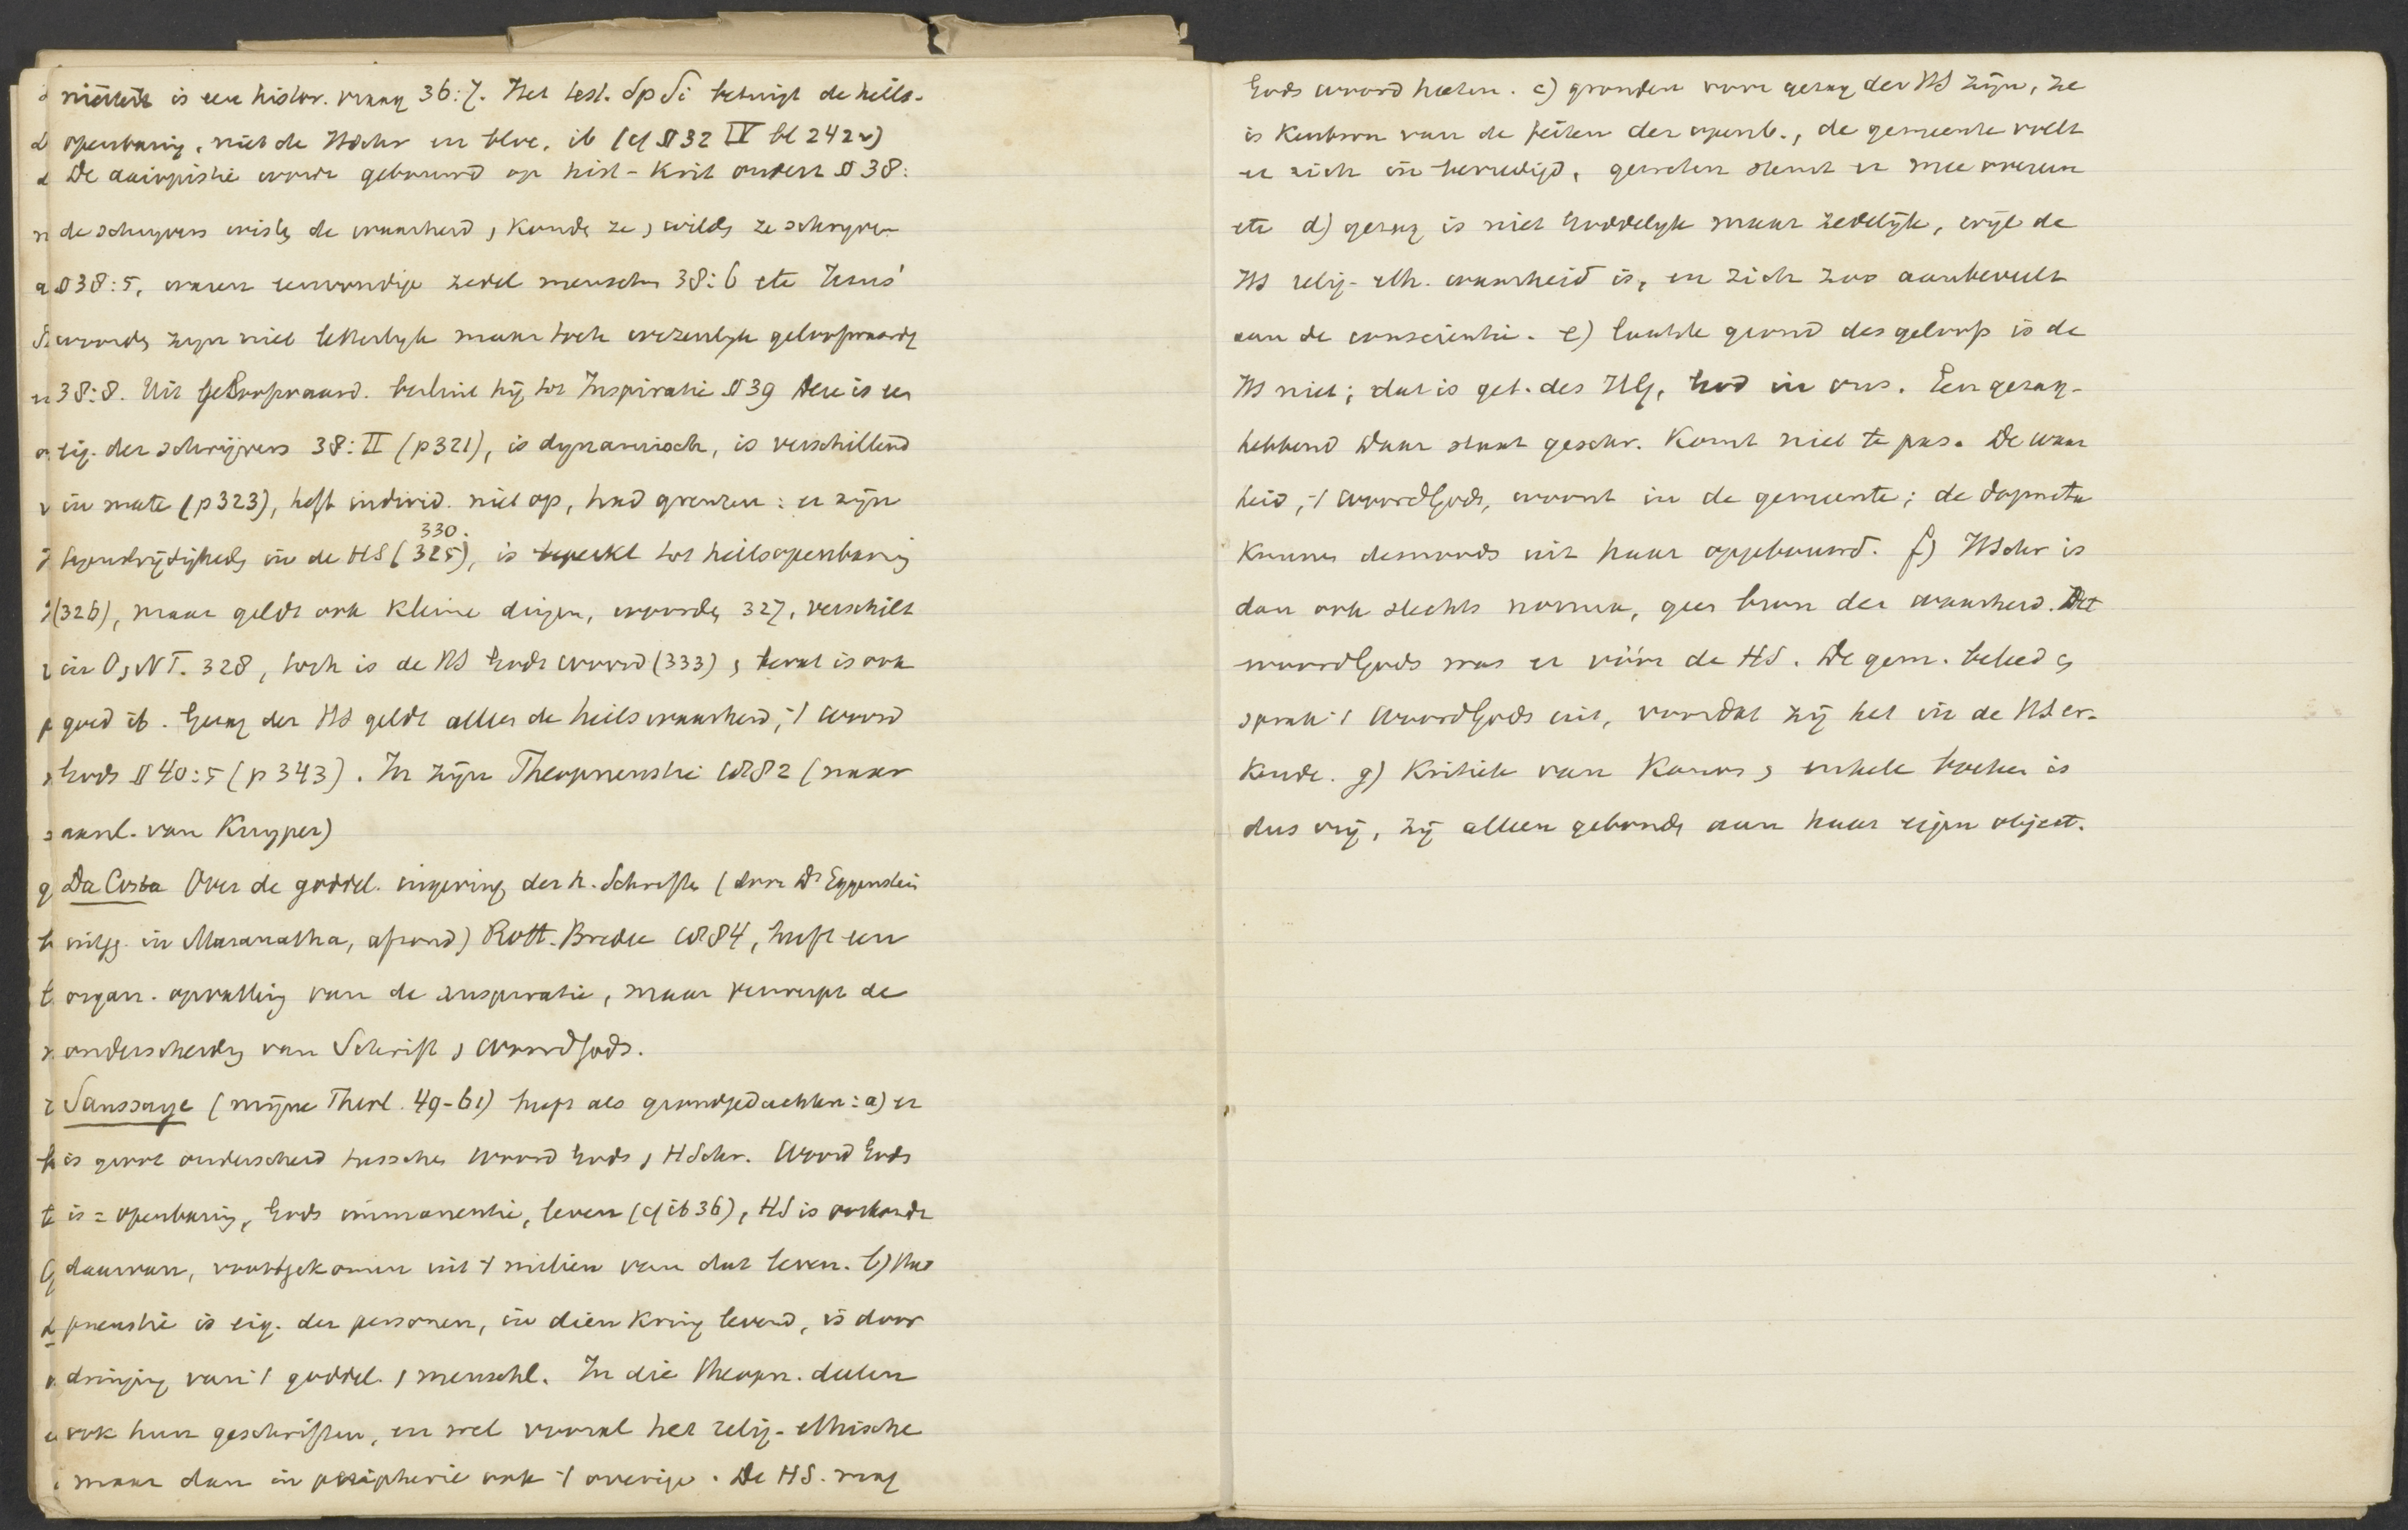 niciteit is een histor. vraag 36:7. Het test. Sp Si betuigt de heils-
openbaring, niet de HSchr en bloc, ib (cf § 32 IV bl 242 v)
De axiopistie wordt gebouwd op hist-krit onderz § 38:
de schrijvers wisten de waarheid, konden ze, wilden ze schrijven
§ 38:5, waren eenvoudige zedel menschen 38:6 etc Jesus'
woorden zijn niet letterlijk maar toch wezenlijk geloofwaardig
38:8. Uit geloofwaard. besluit hij tot Inspiratie § 39 Deze is een
eig. der schrijvers 38:II (p 321), is dynamisch, is verschillend
in mate (p 323), heft individ. niet op, had grenzen: er zijn
330.
tegenstrijdigheden in de HS (325), is beperkt tot heilsopenbaring
(326), maar geldt ook kleine dingen, woorden 327, verschilt
in O, NT. 328, toch is de HS Gods woord (333), bevat is ook
goed ib. Gezag der HS geldt alleen de heilswaarheid, 't woord
Gods § 40:5 (p 343). In zijn Theopneustie 1882 (naar
aanl. van Kuyper)
Da Costa Over de goddel. ingeving der h. Schriften (door Ds Eggenstein
uitgeg. in Maranatha, afzond) Rott. Bredée 1884, heeft een
organ. opvatting van de inspiratie, maar verwerpt de
onderscheiding van Schrift, woord Gods.
Saussaye (mijne Theol. 49-61) heeft als grondgedachten: a) er
is groot onderscheid tusschen woord Gods, HSchr. Woord Gods
is = openbaring, Gods immanentie, leven (cf ib 36), HS is oorkonde
daarvan, voortgekomen uit 't milieu van dat leven. b) Theo
pneustie is eig. der personen, in dien kring levend, is door
dringing van 't goddel., menschl. In die theopn. deelen
ook hun geschriften, en wel vooral het relig-ethische
maar dan in peripherie ook 't overige. De HS. mag
Gods woord heeten. c) gronden voor gezag der HS zijn, ze
is kenbron van de feiten der openb., de gemeente voelt
er zich in bevredigd, geschied. stemt er mee overeen
etc d) gezag is niet Goddelijk maar zedelijk, wijl de
HS relig-eth. waarheid is, en zich zoo aanbeveelt
aan de conscientie. e) laatste grond des geloofs is de
HS niet; dat is get. des HG, God in ons. Een gezag-
hebbend Daar staat geschr. komt niet te pas. De waar
heid, 't woord Gods, woont in de gemeente; de dogmata
kunnen desnoods uit haar opgebouwd. f) HSchr is
dan ook slechts norma, geen bron der waarheid. Het
woord Gods was er vóór de HS. De gem. beleed en
sprak 't woord Gods uit, voordat zij het in de HS er-
kende. g) Kritiek van Kanon, enkele boeken is
dus vrij, zij alleen gebonden aan haar eigen object.